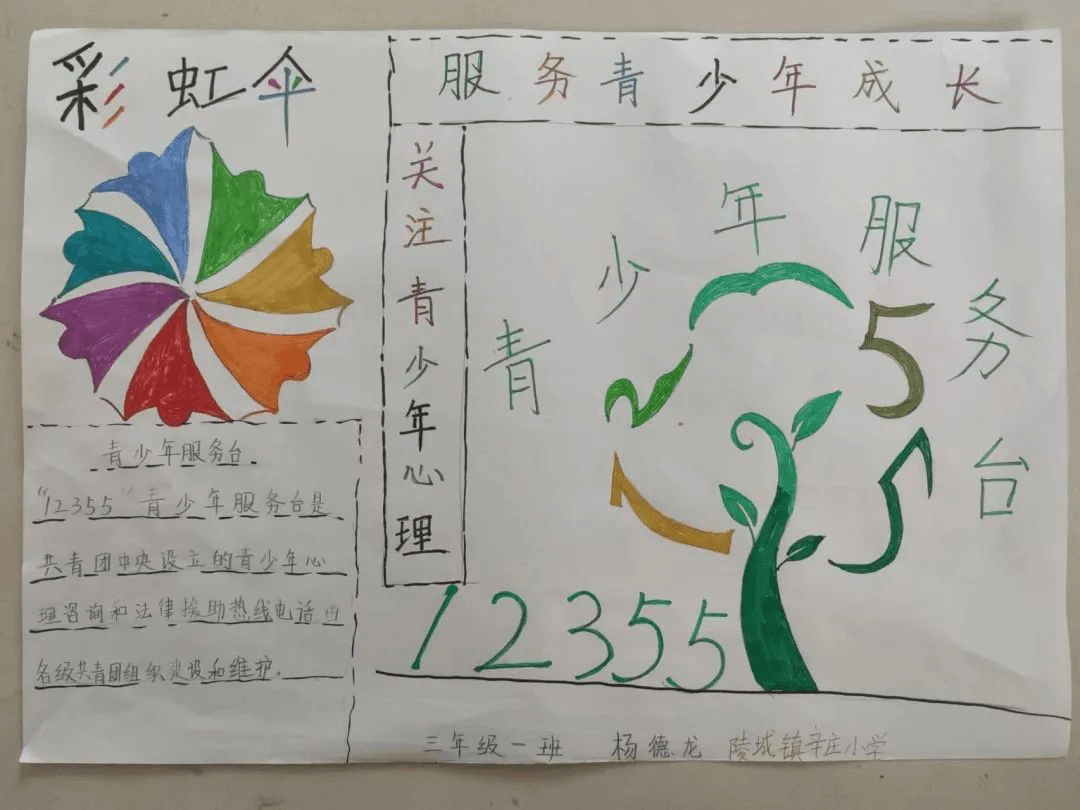 彩虹伞
服务青少年成长
关注青少年心理
青少年服务台
青少年服务台
"12355"青少年服务台是
共青团中央设立的青少年心
理咨询和法律援助热线电话,由
各级共青团组织建设和维护。
12355
三年级一班 杨德龙 陵城镇辛庄小学